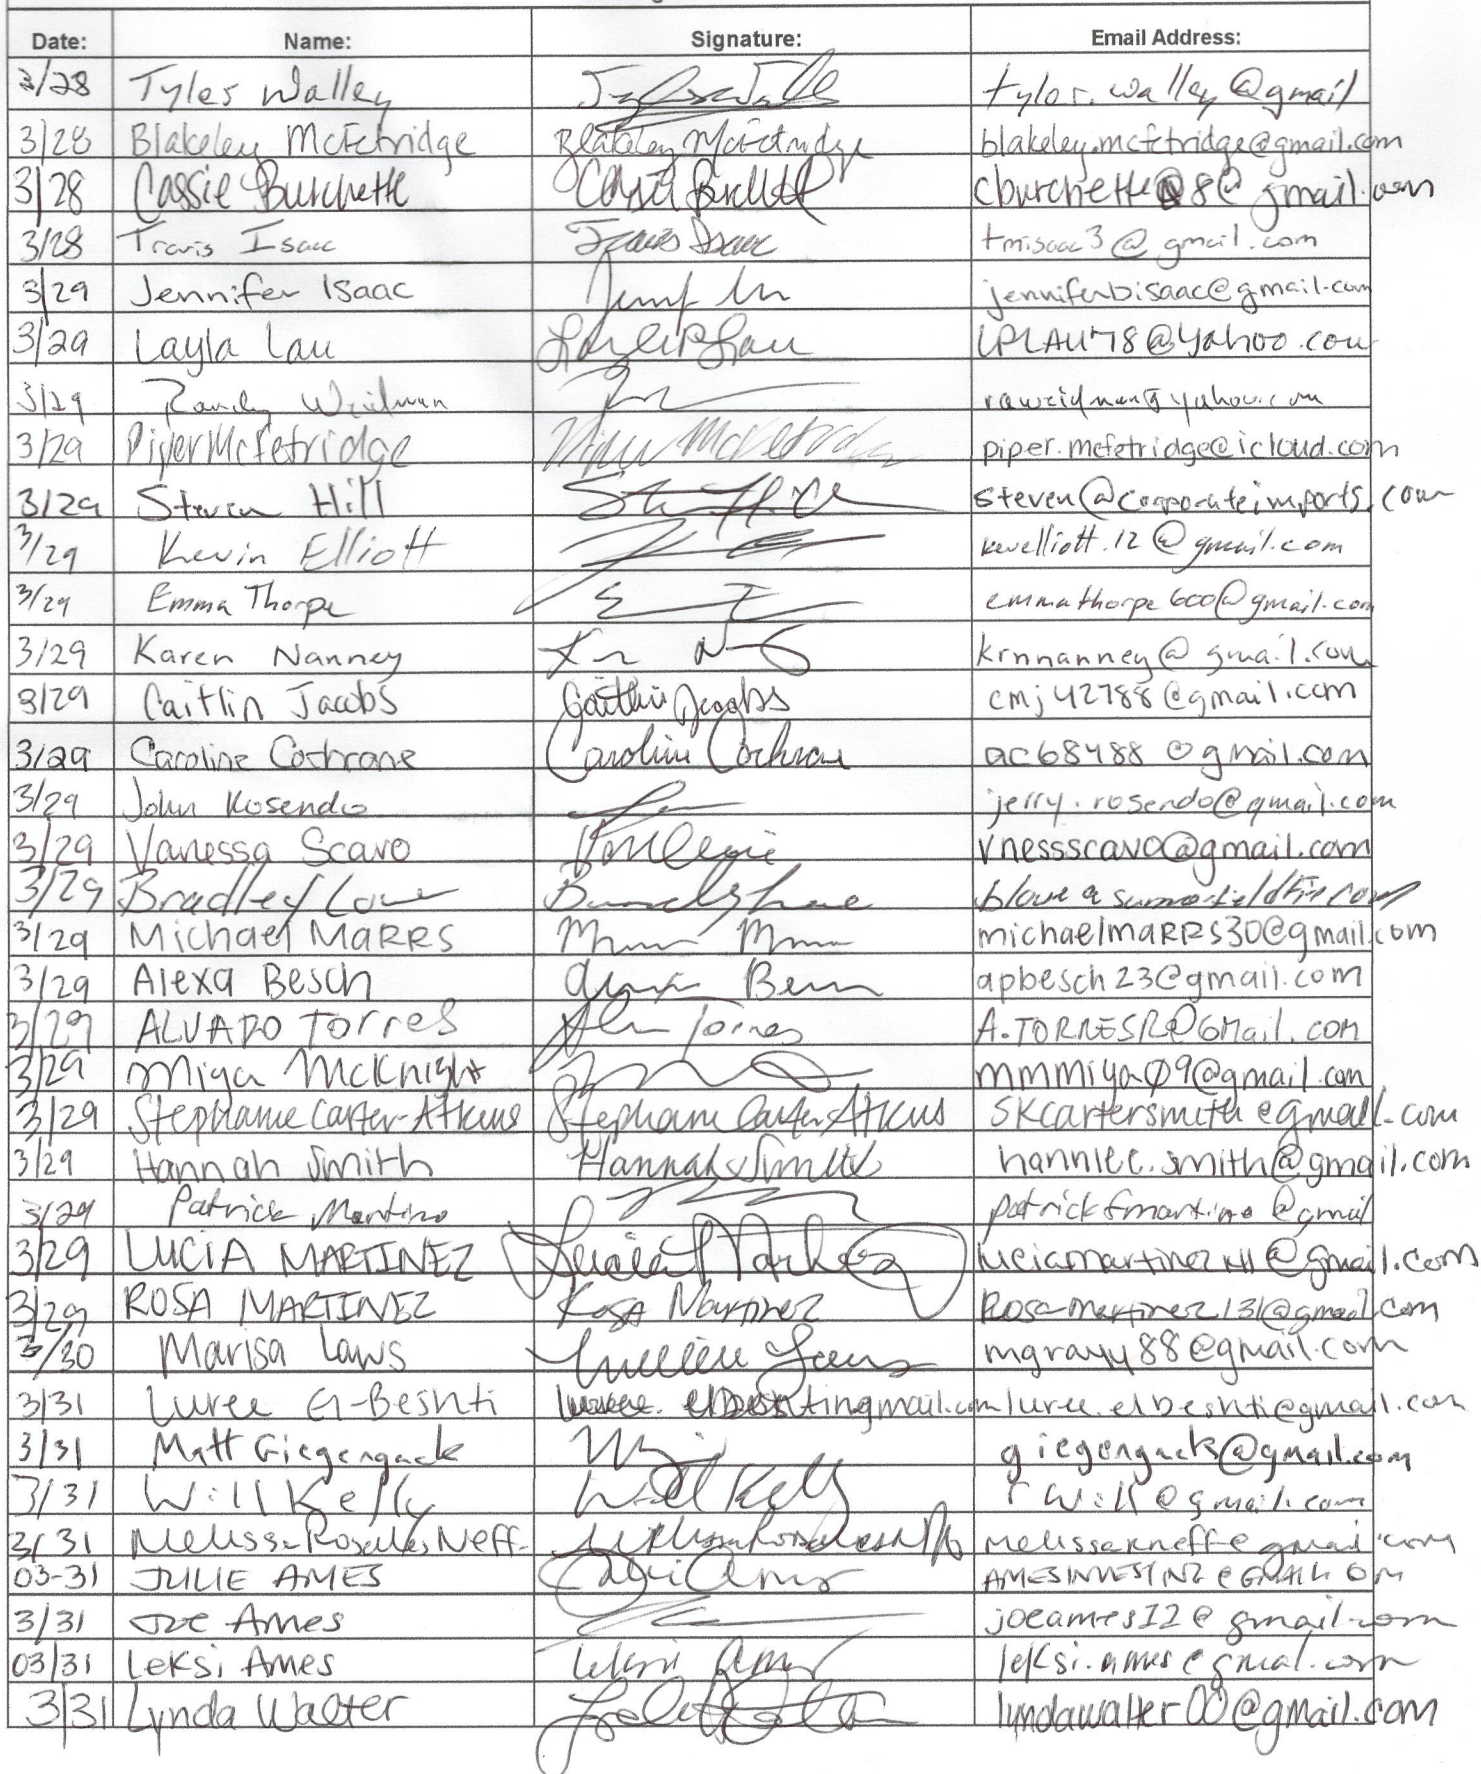 Date: Name: Signature: Email Address:
3/28 Tyler Walley tylor.walley@gmail
3/28 Blakeley McFetridge Blakeley McFetridge blakeley.mcfetridge@gmail.com
3/28 Cassie Burchette cburchette88@gmail.com
3/28 Travis Isaac Travis Isaac tmisaac3@gmail.com
3/29 Jennifer Isaac jenniferbisaac@gmail.com
3/29 Layla Lau LPLAU78@yahoo.com
3/29 Randy Weidman raweidman@yahoo.com
3/29 Piper McFetridge piper.mcfetridge@icloud.com
3/29 Steven Hill steven@corporateimports.com
3/29 Kevin Elliott kevelliott.12@gmail.com
3/29 Emma Thorpe emmathorpe600@gmail.com
3/29 Karen Nanney krnnanney@gmail.com
3/29 Caitlin Jacobs Caitlin Jacobs cmj42788@gmail.com
3/29 Caroline Cochrane Caroline Cochrane ac68488@gmail.com
3/29 John Rosendo jerry.rosendo@gmail.com
3/29 Vanessa Scavo vnessscavo@gmail.com
3/29 Bradley Love
3/29 Michael MARRS michaelmaRRS30@gmail.com
3/29 Alexa Besch apbesch23@gmail.com
3/29 ALVARO Torres A.TORRESR@GMail.com
3/29 Miya McKnight mmmiya09@gmail.com
3/29 Stephanie Carter-Atkins Stephanie Carter-Atkins skcartersmith@gmail.com
3/29 Hannah Smith Hannah Smith hannlee.smith@gmail.com
3/29 Patrick Martino patrickfmartino@gmail
3/29 LUCIA MARTINEZ Lucia Martinez
3/29 ROSA MARTINEZ Rosa Martinez Rosa-martinez131@gmail.com
3/30 Marisa Laws mgrayy88@gmail.com
3/31 Luree El-Beshti luree.elbeshti@gmail.com
3/31 Matt Giegengack giegengack@gmail.com
3/31 Will Kelly Will Kelly rwill@gmail.com
3/31 Melissa Rosales Neff melissarneff@gmail.com
03-31 JULIE AMES
3/31 Joe Ames joeames12@gmail.com
03/31 Leksi Ames Leksi Ames leksi.ames@gmail.com
3/31 Lynda Walter lyndawalter00@gmail.com